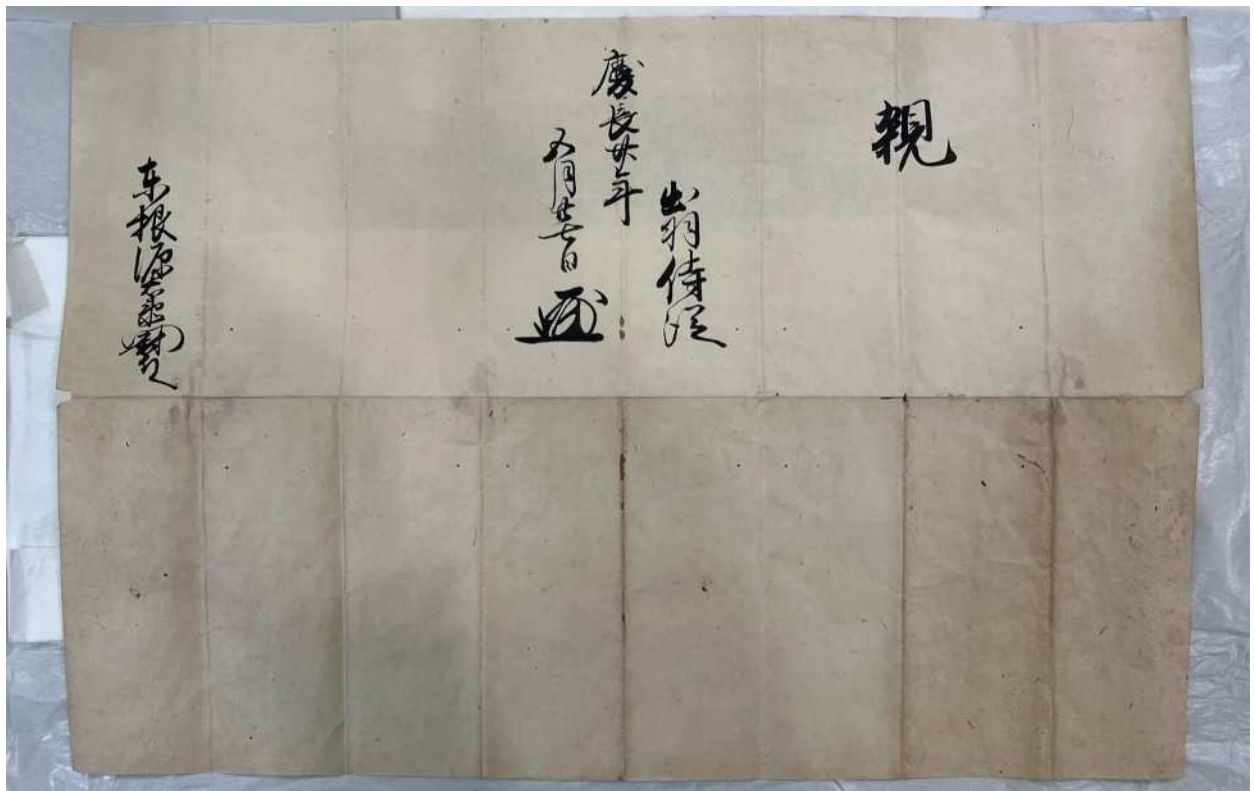 親
出羽侍従
慶長廿年
五月廿七日
東根源右衛門殿